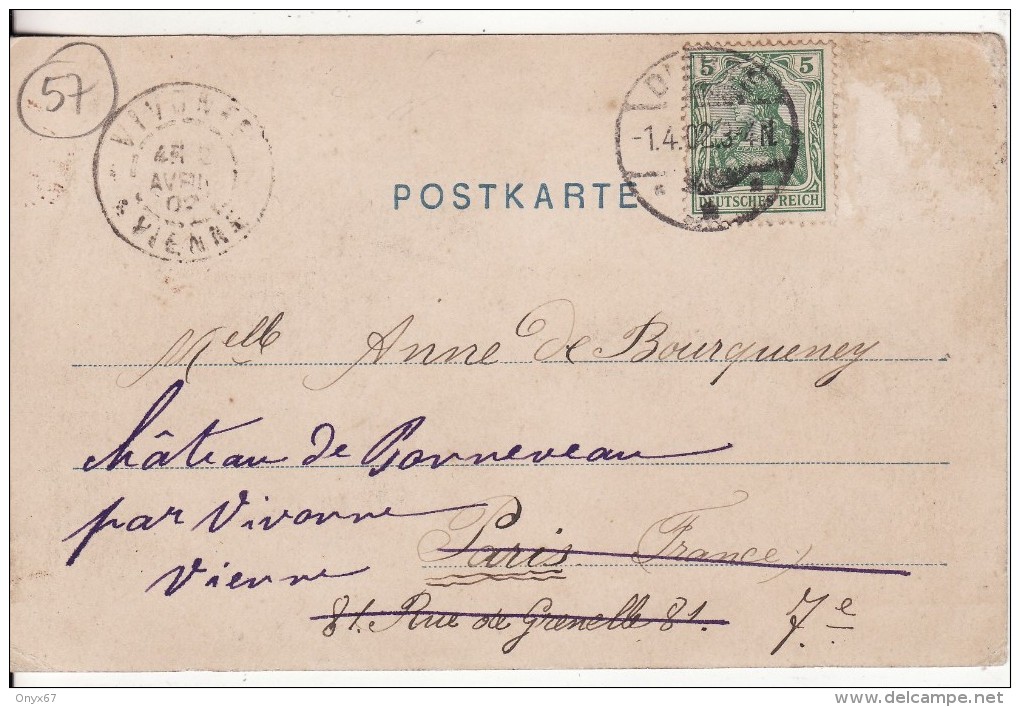 57
VIVONNE
AVRIL
02
VIENNE
5 5
-1.4.02.3-4N.
DEUTSCHES REICH
POSTKARTE
Melle Anne de Bourqueney
château de Bonneveau
par Vivonne
Vienne
Paris (France)
81. Rue de Grenelle 81. 7e
Onyx67
delcampe.net